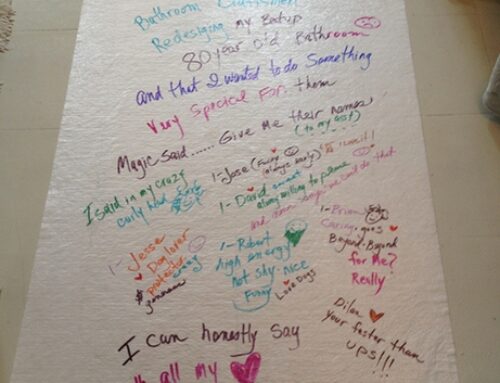 Bathroom
Redesigning my Beatup
80 year old Bathroom
and that I wanted to do Something
Very Special For them
Magic Said...... Give me their names
(to my asst)
I said in my crazy
curly head
1-Jose (Funny
(always early)
1-David sweet
always willing to please
1-Jesse
Dog lover
protector
crazy
1-Robert
high energy
not shy-nice
Funny
Love Dogs
1-Brian
Caring-goes
Beyond-Beyond
for me?
Really
I can honestly say
all my
Dilan
your faster than
ups!!!